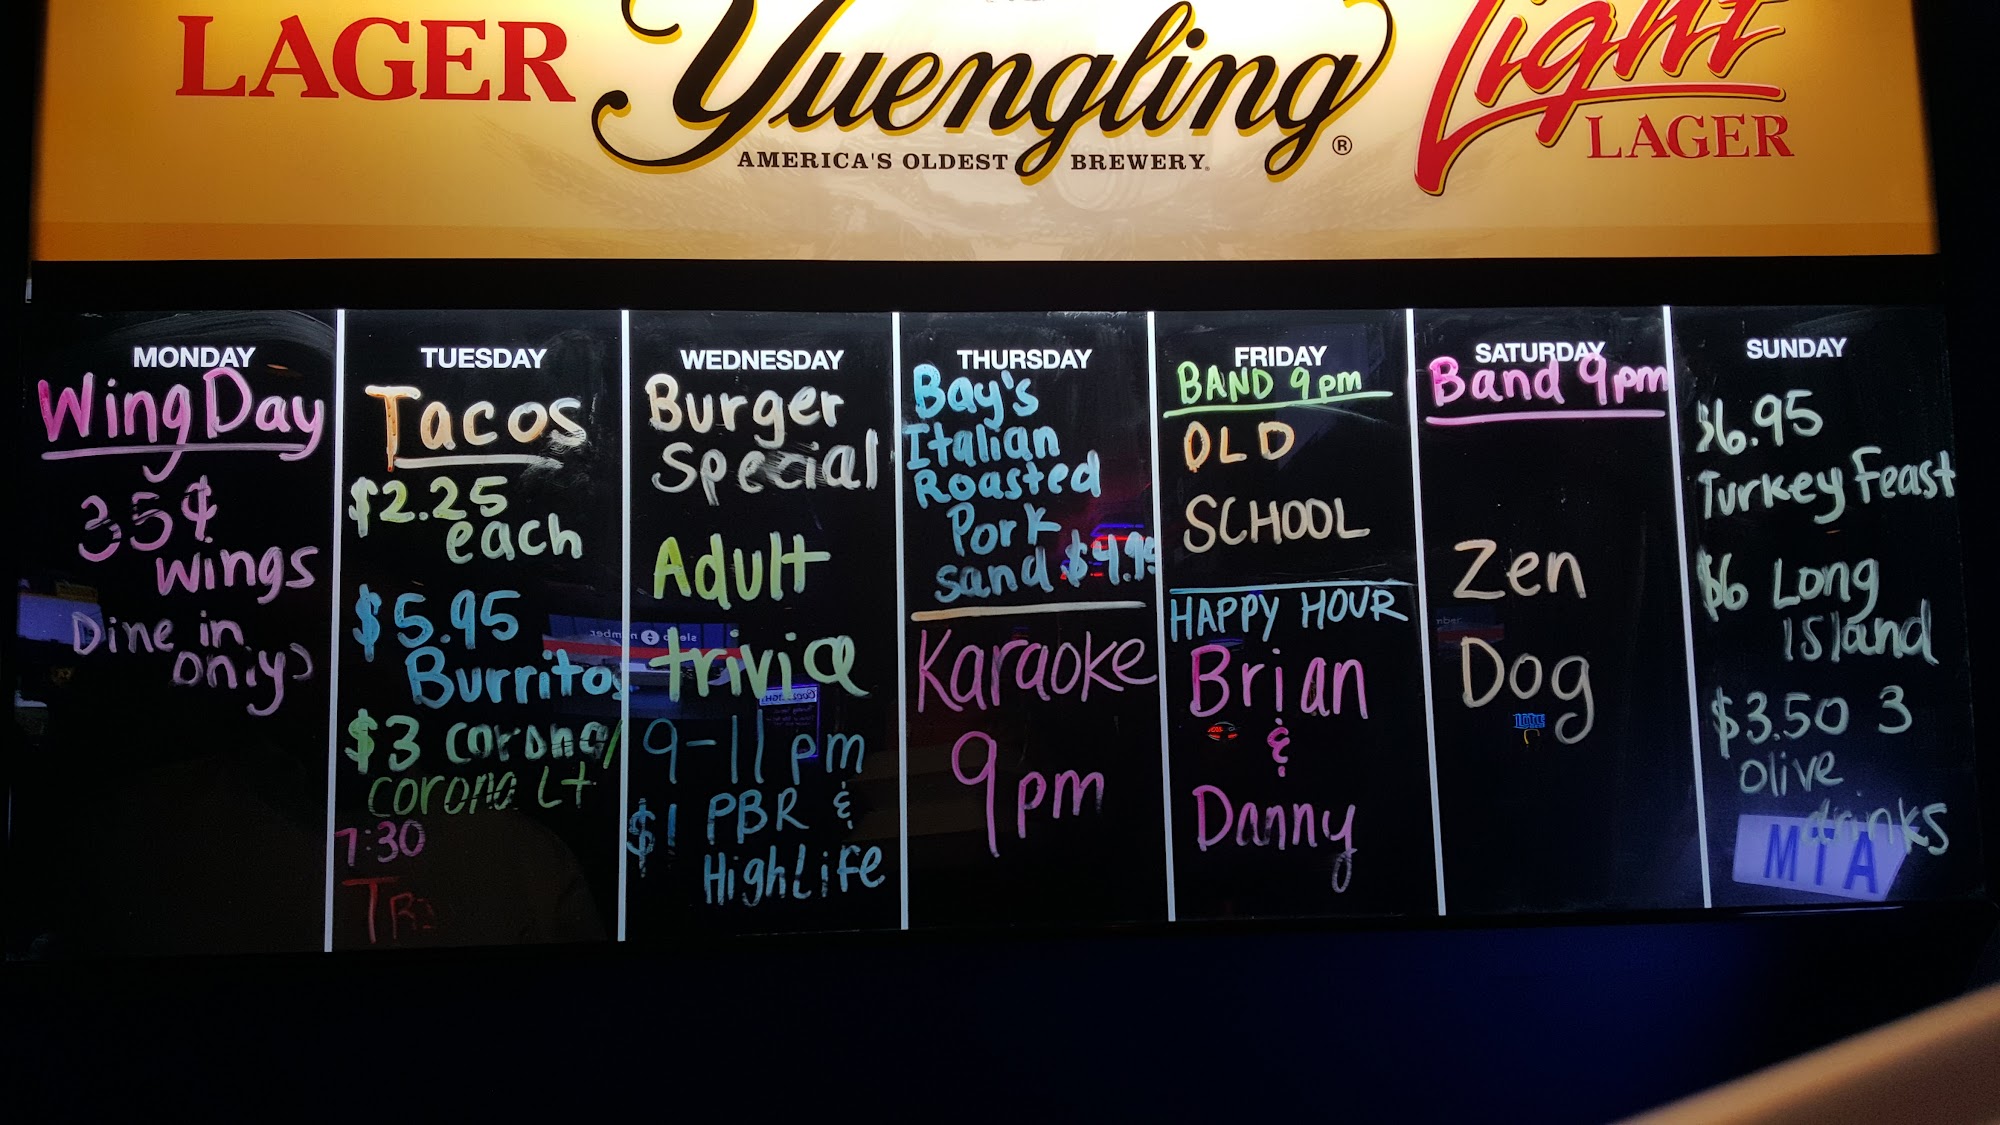 LAGER
Yuengling ®
Light
LAGER
AMERICA'S OLDEST BREWERY.
MONDAY
Wing Day
35¢
wings
Dine in
only
TUESDAY
Tacos
$2.25
each
$5.95
Burritos
$3 corona/
corona Lt
7:30
WEDNESDAY
Burger
Special
Adult
trivia
9-11 pm
$1 PBR &
HighLife
THURSDAY
Bay's
Italian
Roasted
Pork
sand $4.95
Karaoke
9pm
FRIDAY
BAND 9pm
OLD
SCHOOL
HAPPY HOUR
Brian
&
Danny
SATURDAY
Band 9pm
Zen
Dog
SUNDAY
$6.95
Turkey Feast
$6 Long
Island
$3.50 3
Olive
drinks
MTA